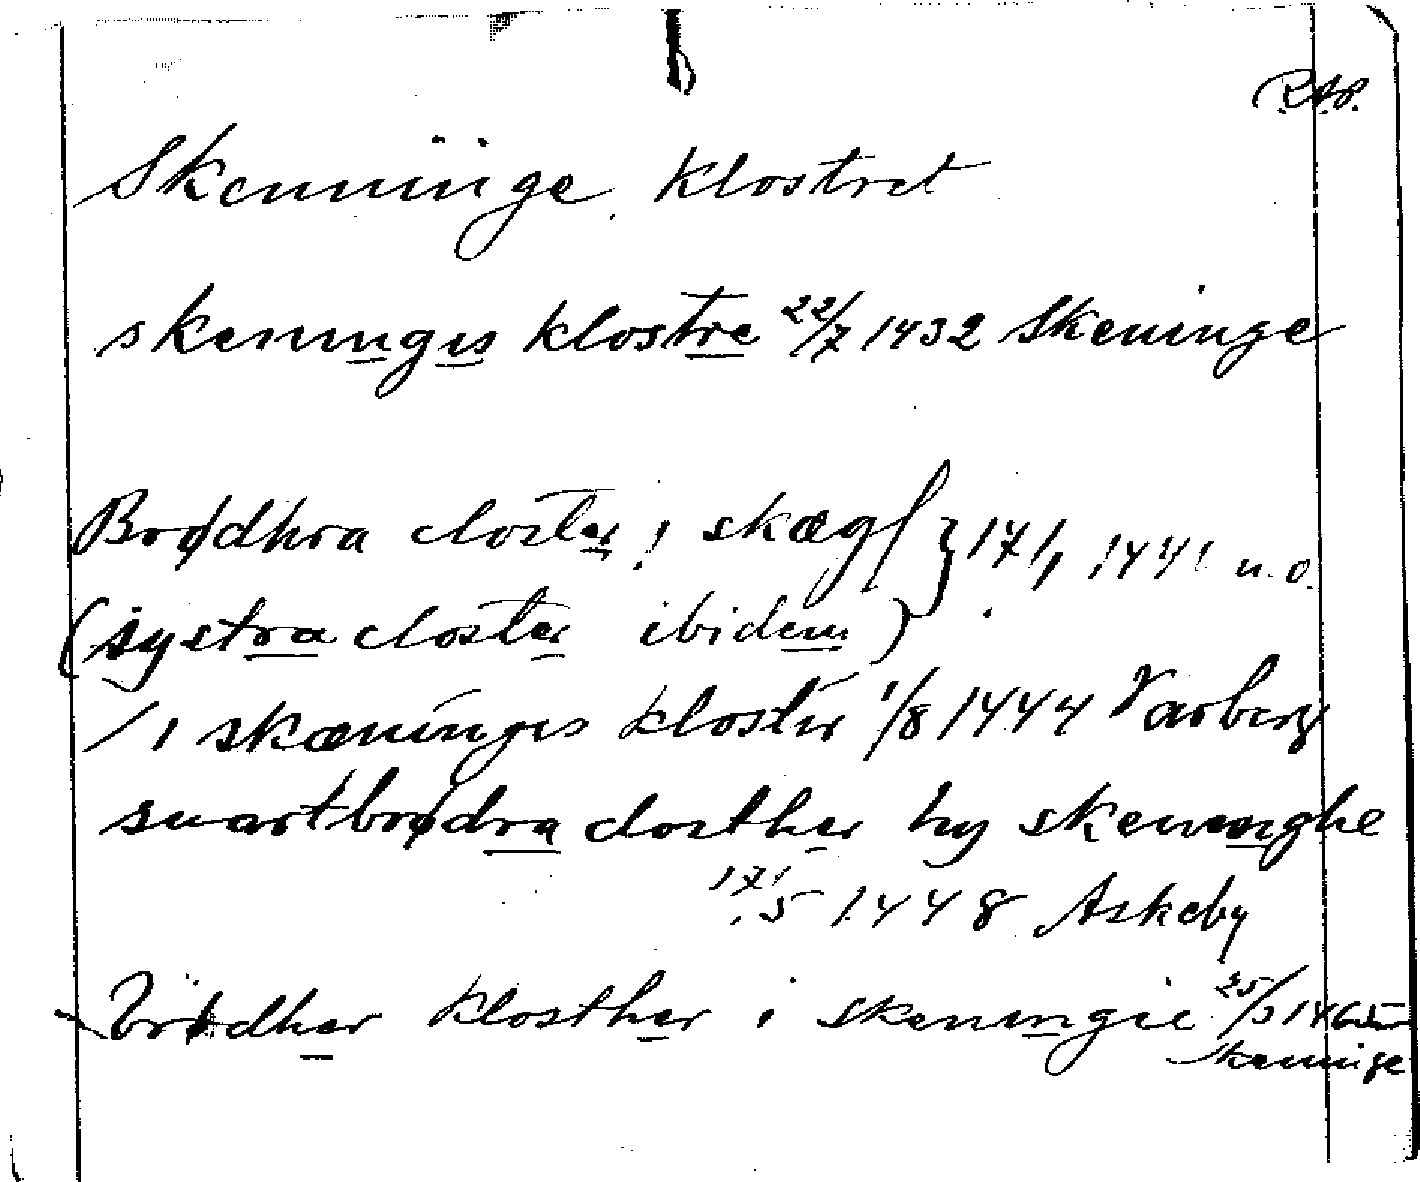 RAP.
Skenninge klostret
skeninges klostre 22/7 1432 Skeninge
Brødhra closter i skægl } 17/1 1441 u.o.
(systra closter ibidem)
/ i skæninges kloster 1/8 1444 Varberg
suartbrødra closther hy skeninghe
17/5 1448 Askeby
Brødher klosther i skeningie 25/5 1465
Skeninge